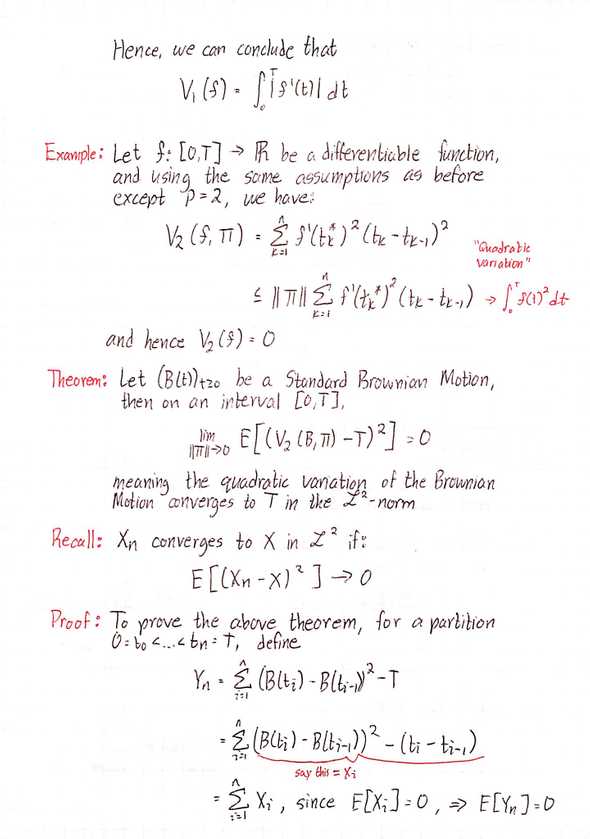 Hence, we can conclude that
V₁(f) = ∫₀ᵀ |f'(t)| dt
Example: Let f: [0,T] → ℝ be a differentiable function,
and using the same assumptions as before
except p=2, we have:
V₂(f, Π) = Σₖ₌₁ⁿ f'(tₖ*)² (tₖ - tₖ₋₁)²
"Quadratic
variation"
≤ ||Π|| Σₖ₌₁ⁿ f'(tₖ*)² (tₖ - tₖ₋₁) → ∫₀ᵀ f(t)² dt
and hence V₂(f) = 0
Theorem: Let (B(t))ₜ≥₀ be a Standard Brownian Motion,
then on an interval [0,T],
lim ||Π||→0 E[(V₂(B,Π) - T)²] = 0
meaning the quadratic variation of the Brownian
Motion converges to T in the ℒ²-norm
Recall: Xₙ converges to X in ℒ² if:
E[(Xₙ - X)²] → 0
Proof: To prove the above theorem, for a partition
0 = t₀ < ... < tₙ = T, define
Yₙ = Σᵢ₌₁ⁿ (B(tᵢ) - B(tᵢ₋₁))² - T
= Σᵢ₌₁ⁿ (B(tᵢ) - B(tᵢ₋₁))² - (tᵢ - tᵢ₋₁)
say this = Xᵢ
= Σᵢ₌₁ⁿ Xᵢ, since E[Xᵢ] = 0, ⇒ E[Yₙ] = 0